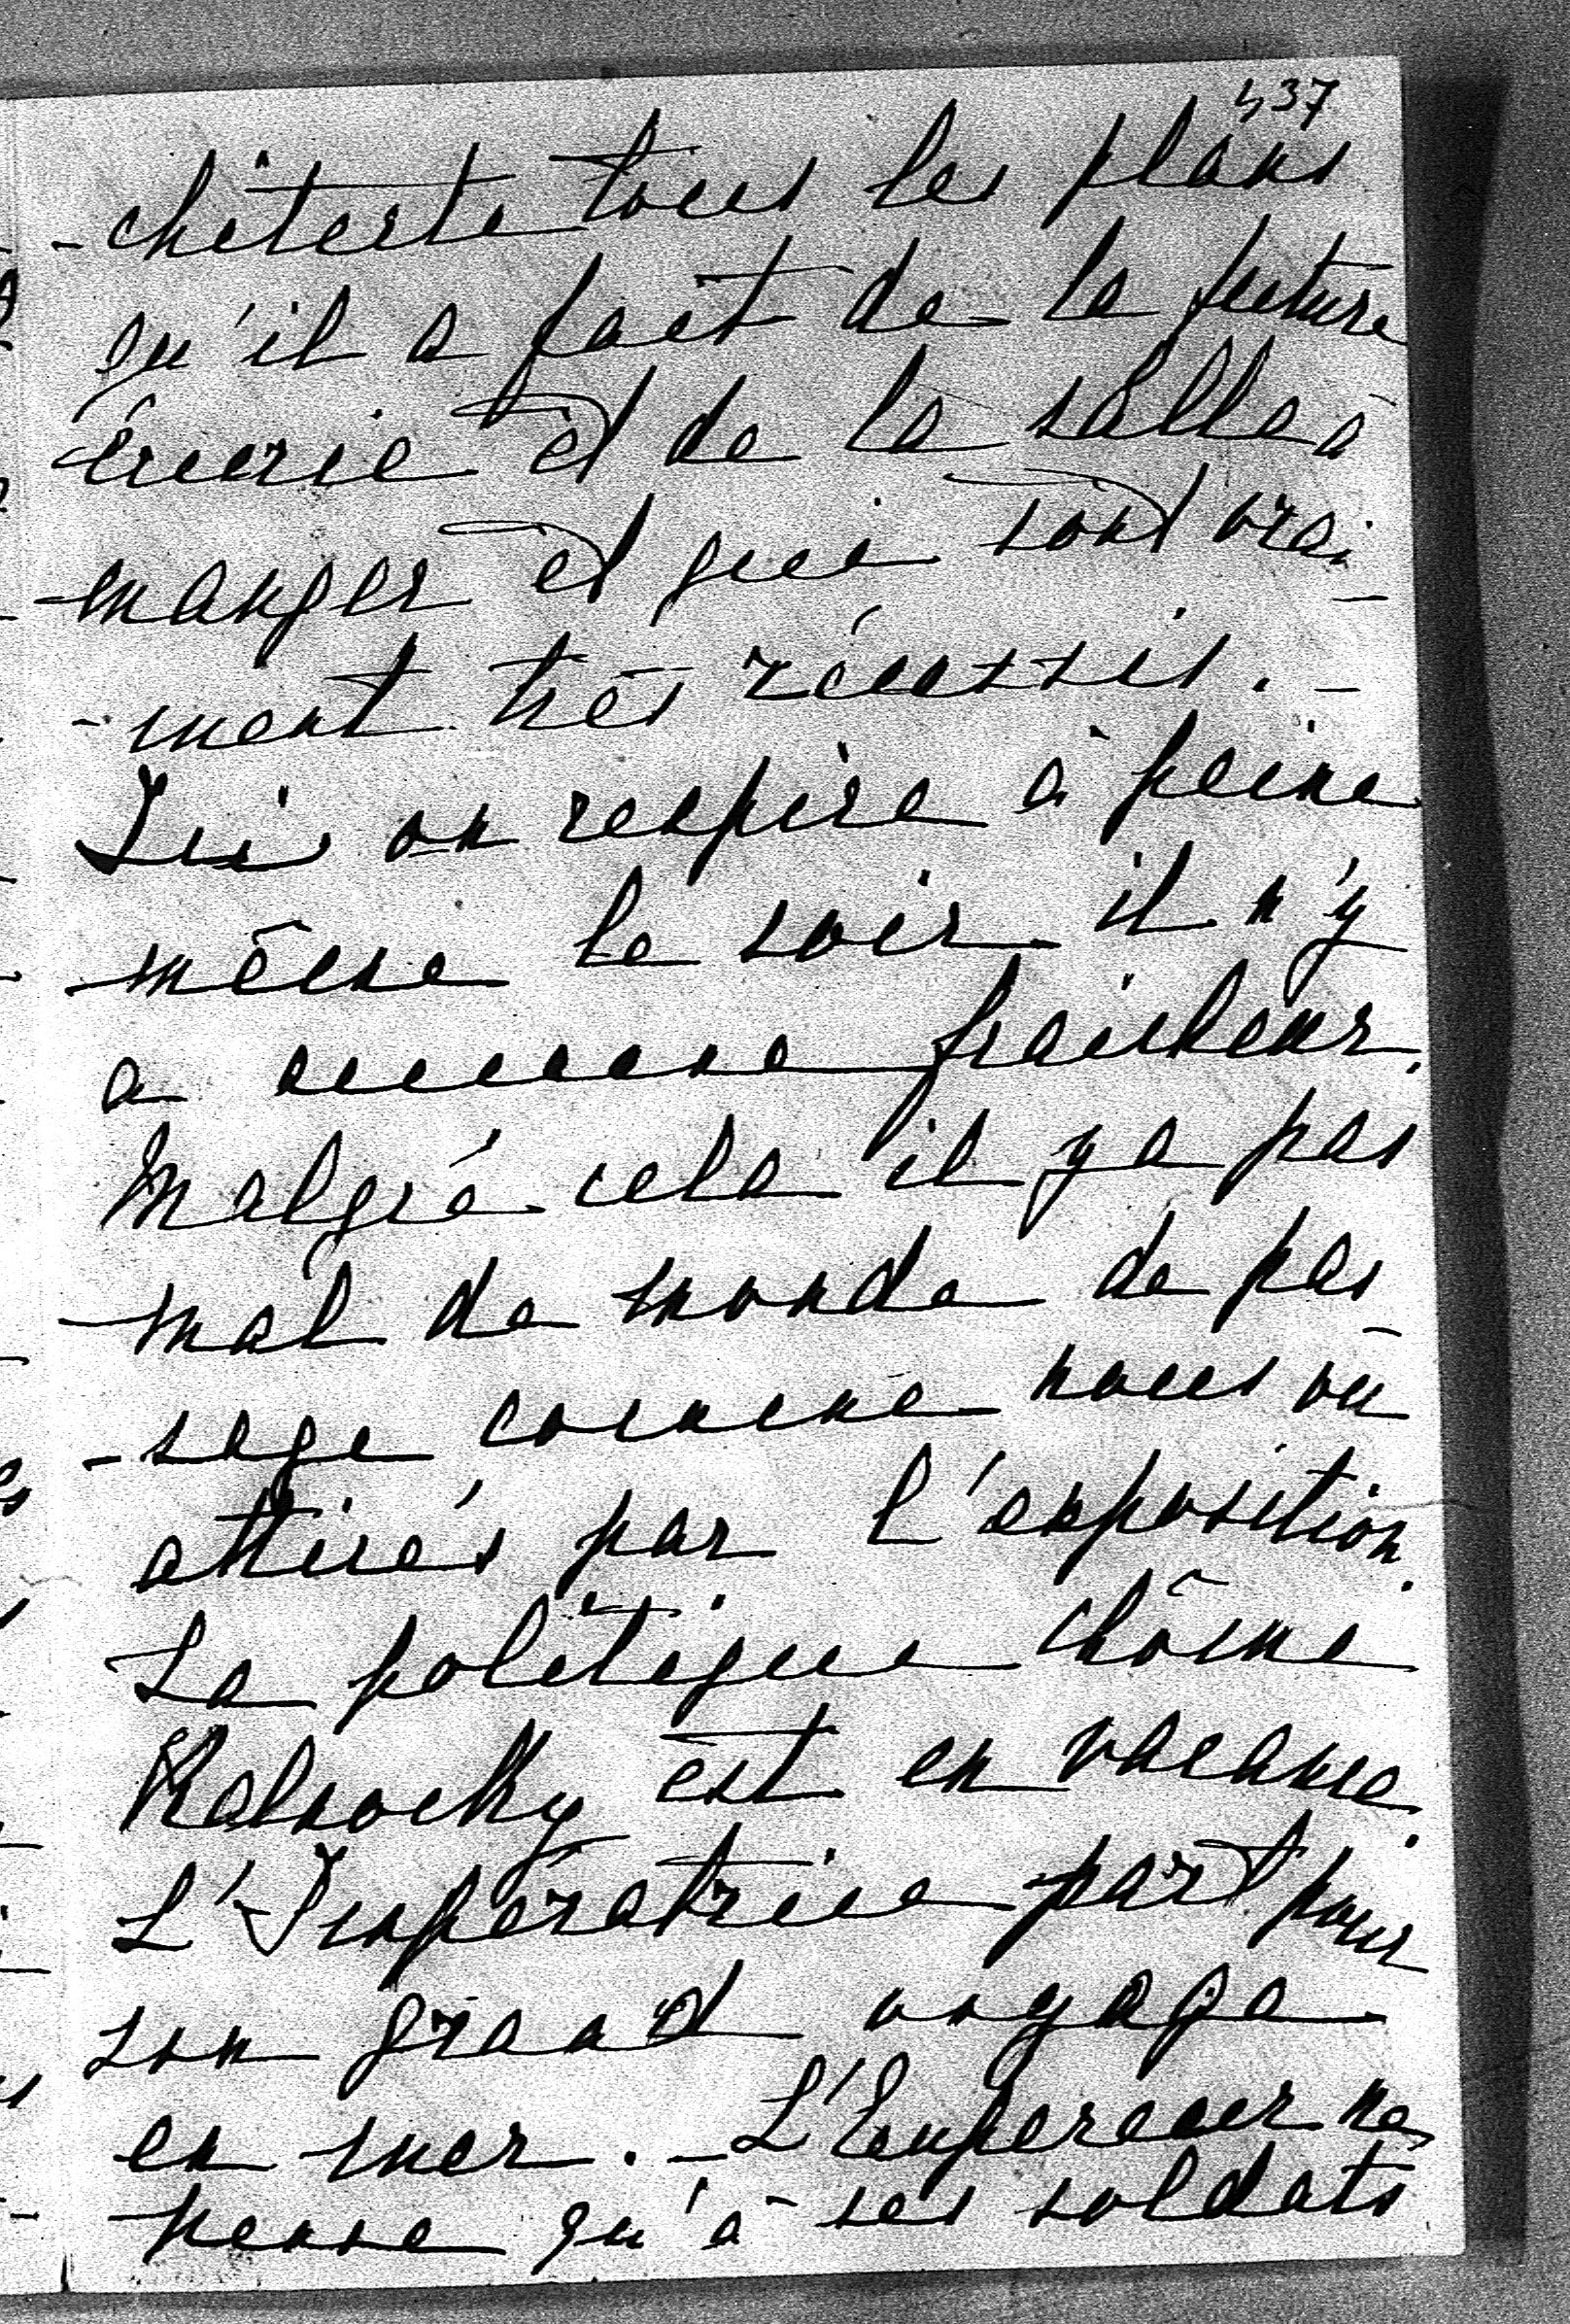 437
-chitecte tous les plans
qu'il a fait de la future
écurie et de la salle à
manger et qui sont vrai-
-ment très réussis. -
Ici on respire à peine
même le soir il n'y
a aucune fraicheur.
Malgré cela il y a pas
mal de monde de pas-
-sage comme nous ou
attirés par l'exposition.
La politique chôme
Kalnocky est en vacance.
L'Impératrice part pour
son grand voyage
en mer. - L'Empereur ne
pense qu'à ses soldats